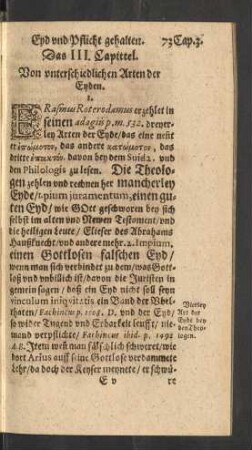 Eyd vnd Pflicht gehalten. 73 Cap. 3.
Das III. Capittel.
Von vnterschiedlichen Arten der
Eyden.
1.
ERasmus Roterodamus erzehlet in
seinen adagiis p. m. 532. dreyer-
ley Arten der Eyde/ das eine
das andere das
dritte davon bey dem Suida, vnd
den Philologis zu lesen. Die Theolo-
gen zehlen vnd rechnen her mancherley
Eyde/ 1. pium juramentum, einen gu-
ten Eyd/ wie GOtt geschworen bey sich
selbst im alten vnd Newen Testament/ vnd
die heiligen leute/ Elieser des Abrahams
Haußknecht/ vnd andere mehr. 2. Impium,
einen Gottlosen falschen Eyd/
wenn man sich verbindet zu dem/ was Gott-
loß vnd vnbillich ist/ davon die Juristen in
gemein sagen/ daß ein Eyd nicht soll seyn
vinculum iniqvitatis ein Band der Vbel-
thaten/ Fachin. m p. 1108. D. vnd der Eyd/
so wider Tugend vnd Erbarkeit leufft/ nie-
mand verpflichte/ Fachineus ibid. p. 1492
Item weñ man fälschlich schweret/ wie
dort Arius auff seine Gottlose verdammete
lehr/ da doch der Keyser meynete/ er schwü-
E v re
Vierley
Art des
Eyds bey
den Theo-
logen.